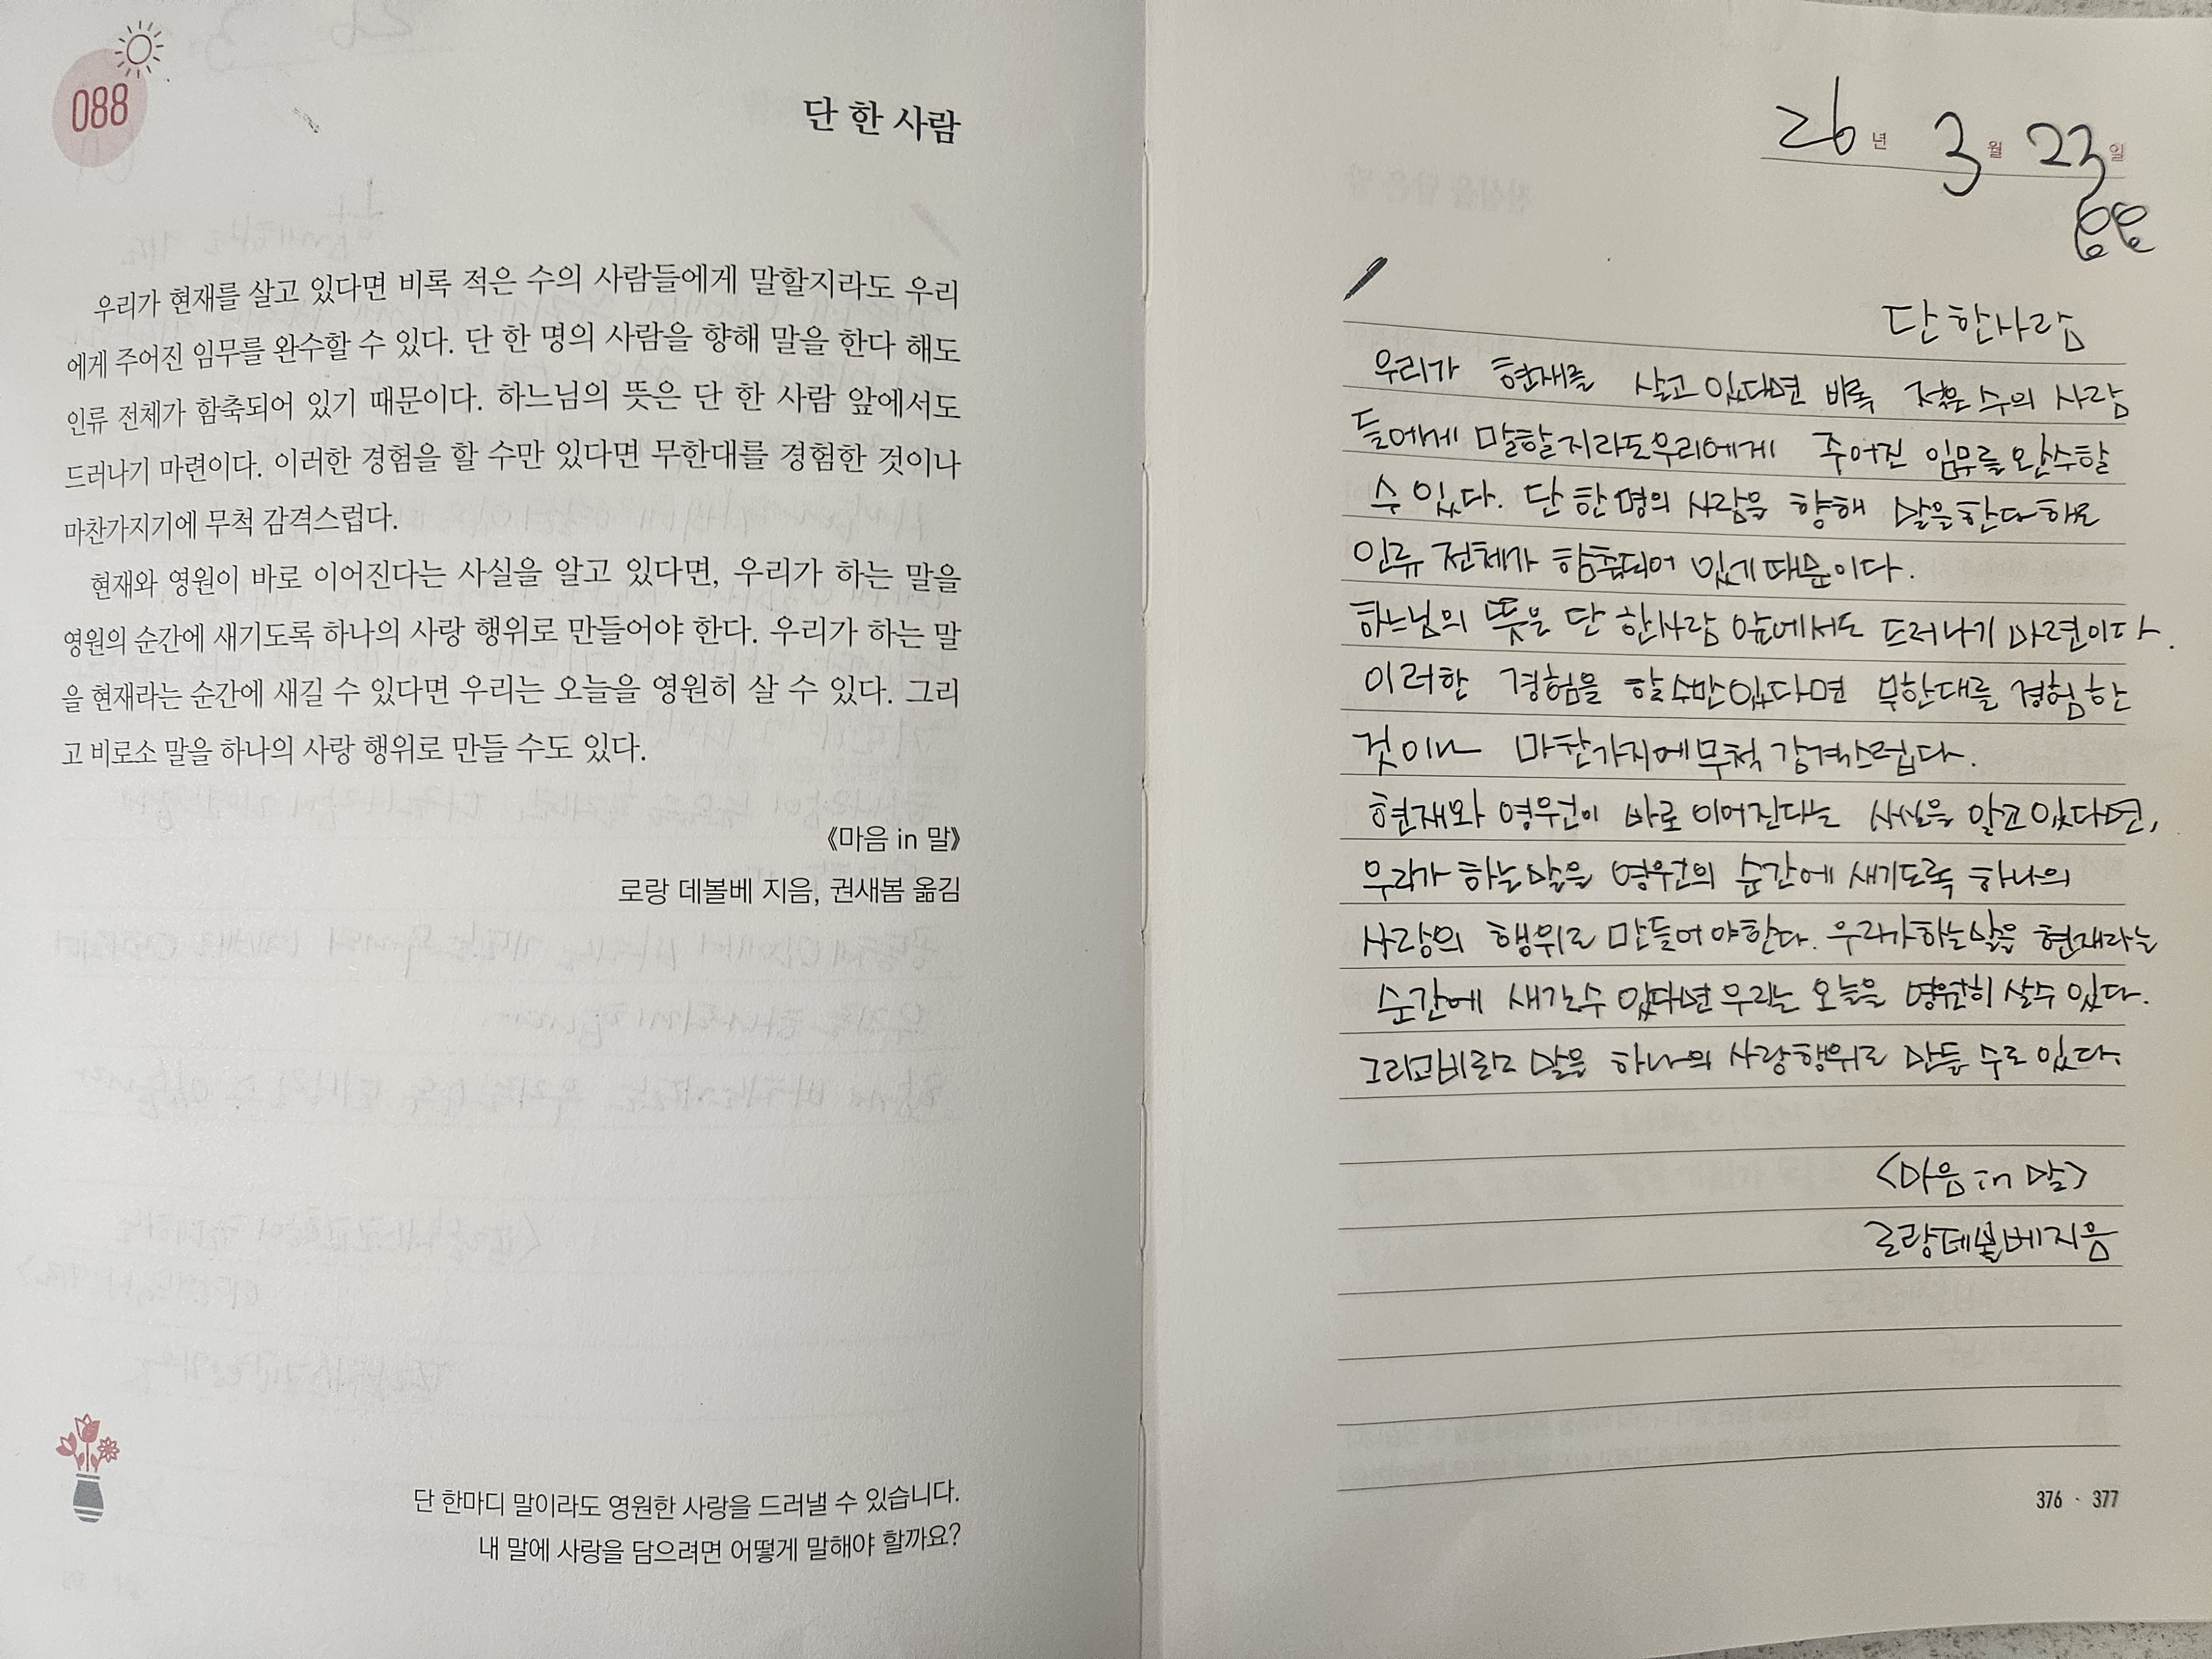 088
단 한 사람
우리가 현재를 살고 있다면 비록 적은 수의 사람들에게 말할지라도 우리
에게 주어진 임무를 완수할 수 있다. 단 한 명의 사람을 향해 말을 한다 해도
인류 전체가 함축되어 있기 때문이다. 하느님의 뜻은 단 한 사람 앞에서도
드러나기 마련이다. 이러한 경험을 할 수만 있다면 무한대를 경험한 것이나
마찬가지기에 무척 감격스럽다.
현재와 영원이 바로 이어진다는 사실을 알고 있다면, 우리가 하는 말을
영원의 순간에 새기도록 하나의 사랑 행위로 만들어야 한다. 우리가 하는 말
을 현재라는 순간에 새길 수 있다면 우리는 오늘을 영원히 살 수 있다. 그리
고 비로소 말을 하나의 사랑 행위로 만들 수도 있다.
《마음 in 말》
로랑 데볼베 지음, 권새봄 옮김
단 한마디 말이라도 영원한 사랑을 드러낼 수 있습니다.
내 말에 사랑을 담으려면 어떻게 말해야 할까요?
26년 3월 23일
단 한사람
우리가 현재를 살고 있다면 비록 적은 수의 사람
들에게 말할지라도 우리에게 주어진 임무를 완수할
수 있다. 단 한 명의 사람을 향해 말을 한다 해도
인류 전체가 함축되어 있게 때문이다.
하느님의 뜻을 단 한사람 앞에서도 드러나기 마련이다.
이러한 경험을 할 수만 있다면 무한대를 경험한
것이나 마찬가지에 무척 감격스럽다.
현재와 영원이 바로 이어진다는 사실을 알고 있다면,
우리가 하는 말을 영원의 순간에 새기도록 하나의
사랑의 행위로 만들어야한다. 우리가 하는 말을 현재라는
순간에 새길수 있다면 우리는 오늘을 영원히 살수 있다.
그리고 말을 하나의 사랑행위로 만들 수도 있다.
<마음 in 말>
로랑데볼베지음
376 · 377